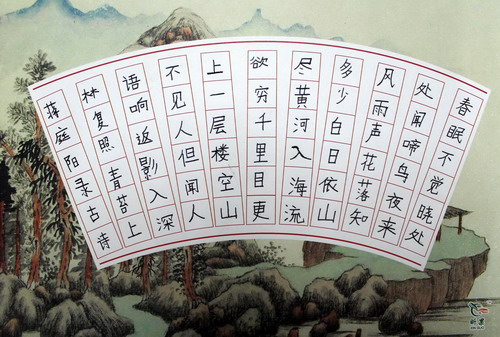 春眠不觉晓处
处闻啼鸟夜来
风雨声花落知
多少白日依山
尽黄河入海流
欲穷千里目更
上一层楼空山
不见人但闻人
语响返影入深
林复照青苔上
蒋庭阳录古诗